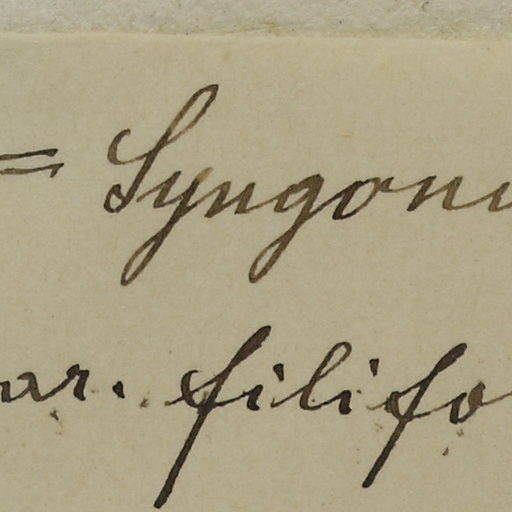 = Syngoni
ar. filifo